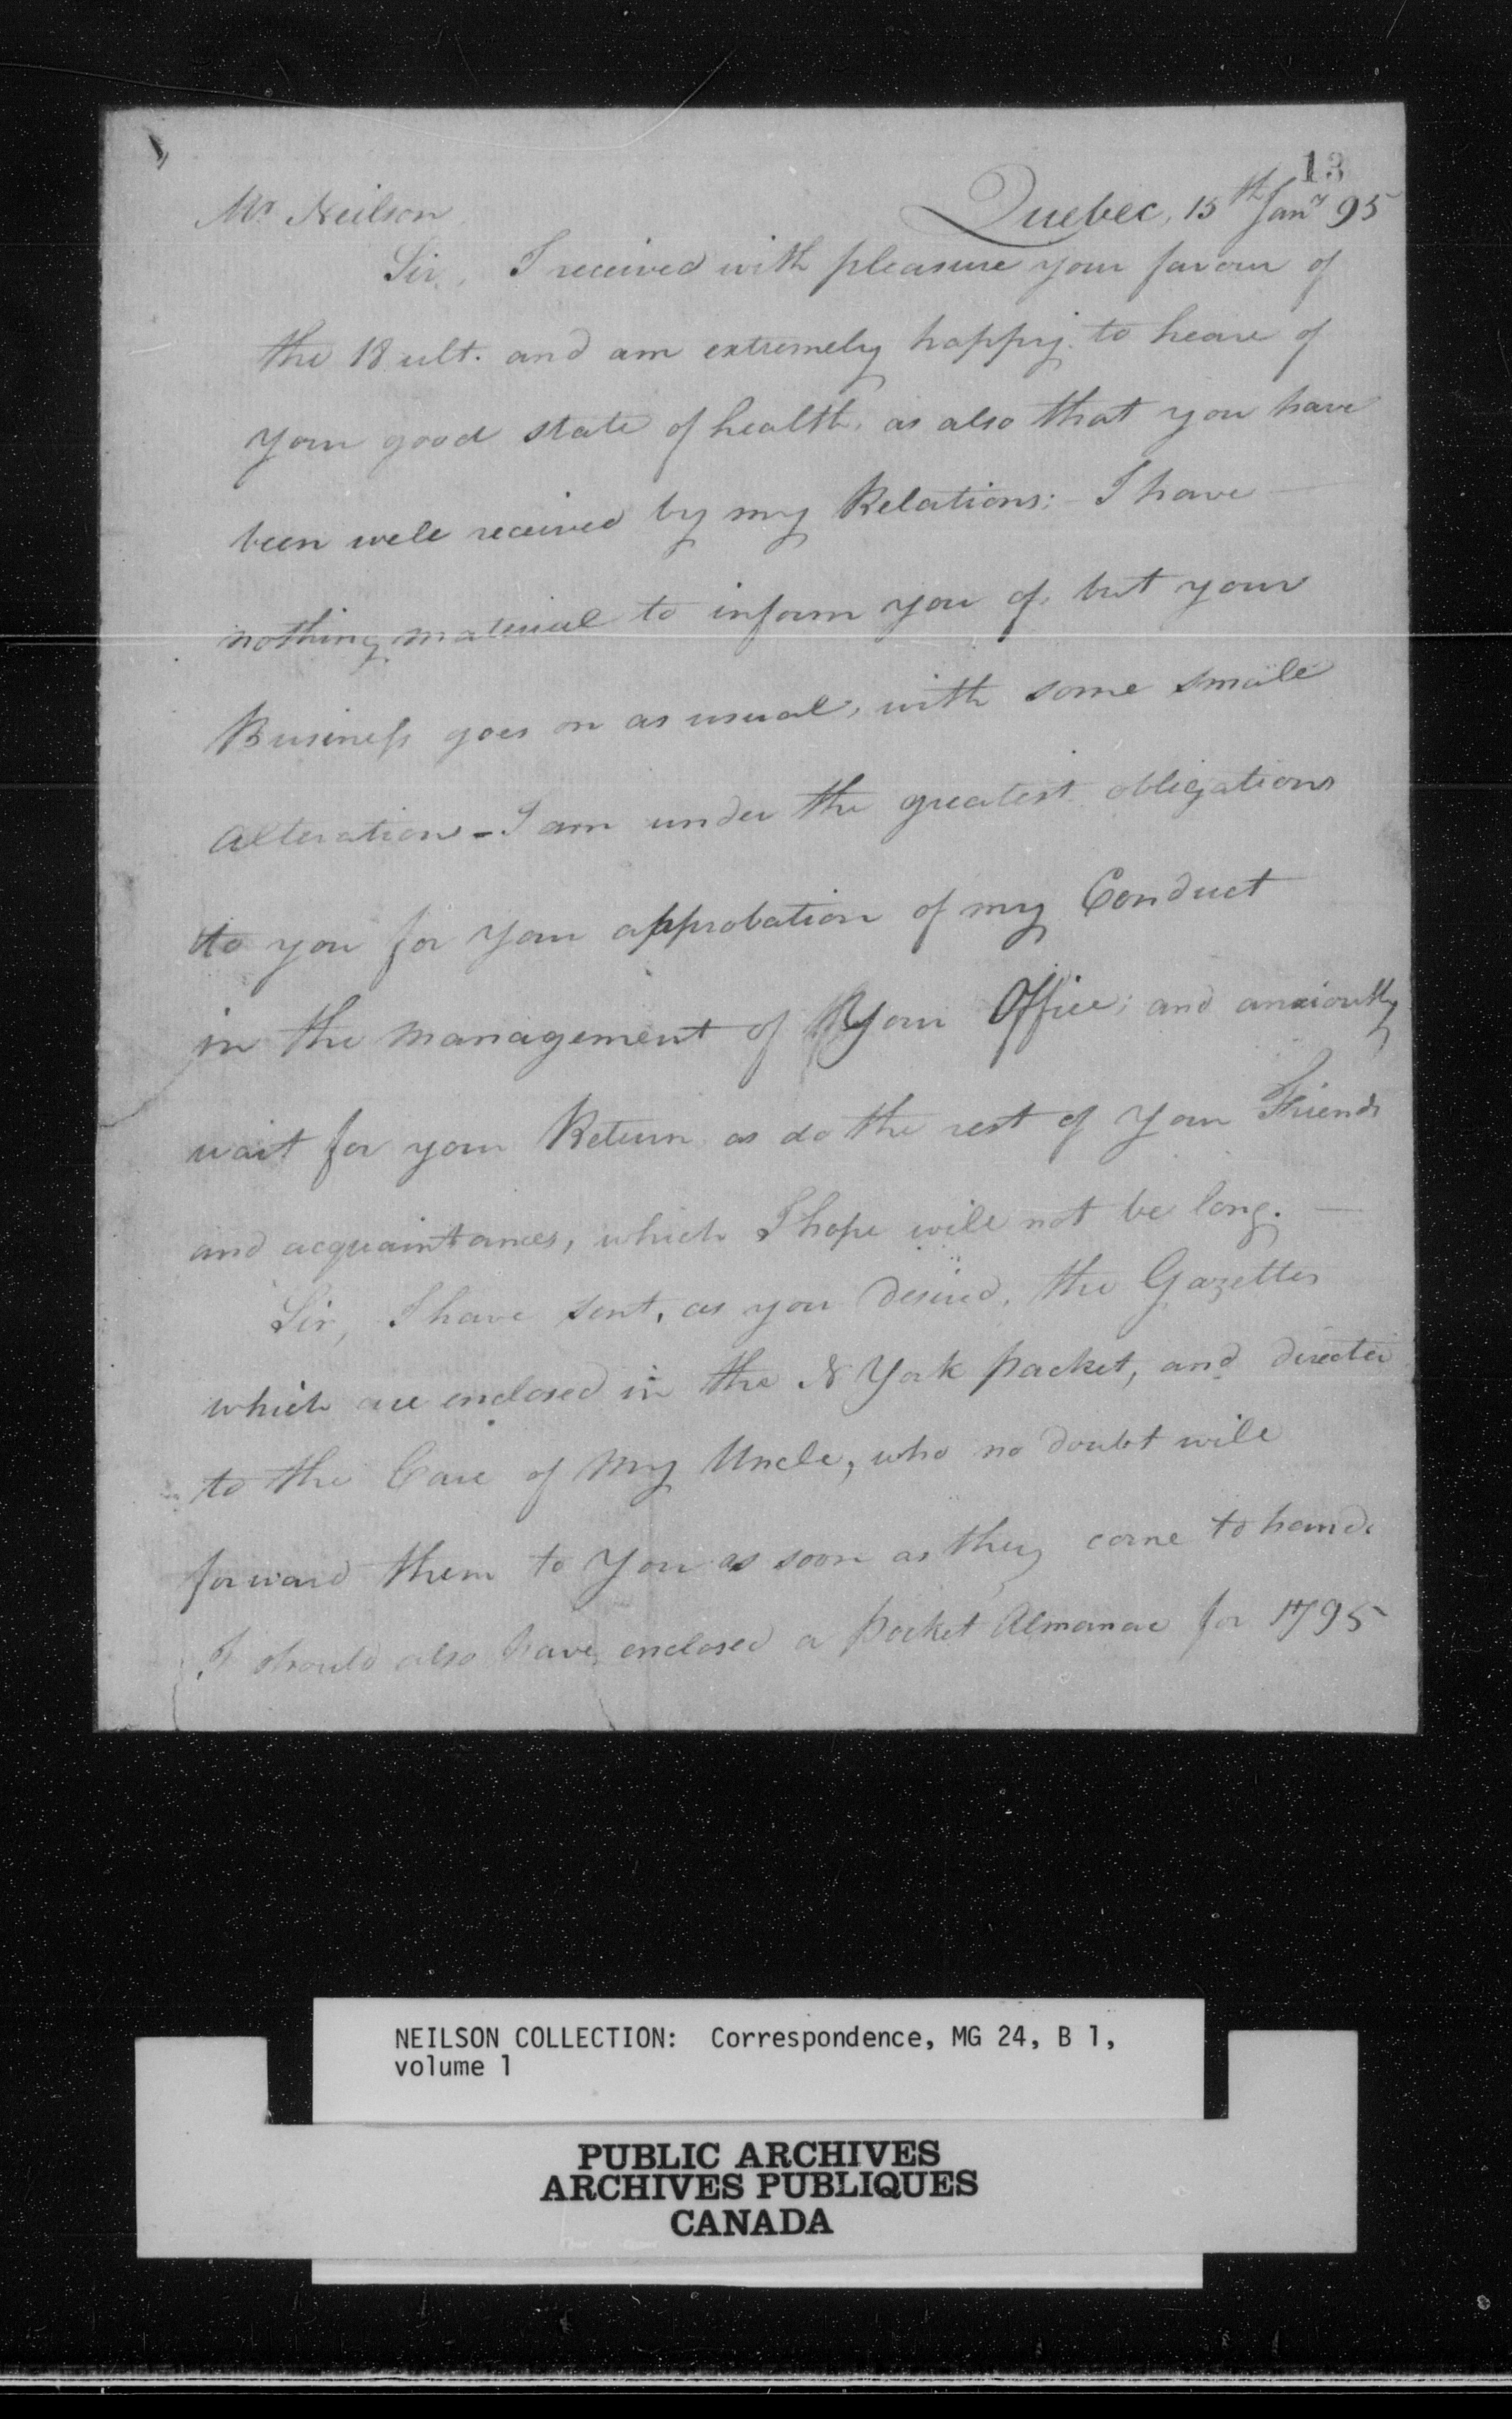 13
Mr Neilson
Quebec, 15th Jany 95
Sir, I received with pleasure your favour of
the 18 ult. and am extremely happy to heare of
your good state of health, as also that you have
been well received by my Relations; I have —
nothing material to inform you of, but your
Business goes on as usual, with some small
alterations - I am under the greatest obligations
to you for your approbation of my Conduct
in the management of Your Office; and anxiously
wait for your Return as do the rest of your Friends
and acquaintances, which I hope will not be long. —
Sir, I have sent, as you desired, the Gazettes
which are enclosed in the N York packet, and directed
to the Care of my Uncle, who no doubt will
forward them to You as soon as they come to hand.
I should also have enclosed a pocket Almanac for 1795
NEILSON COLLECTION: Correspondence, MG 24, B 1,
volume 1
PUBLIC ARCHIVES
ARCHIVES PUBLIQUES
CANADA